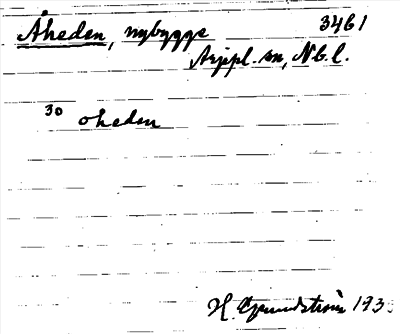 Åheden, nybygge 3461
Arjepl. sn, Nb. l.
30 oheden
H. Grundström 193